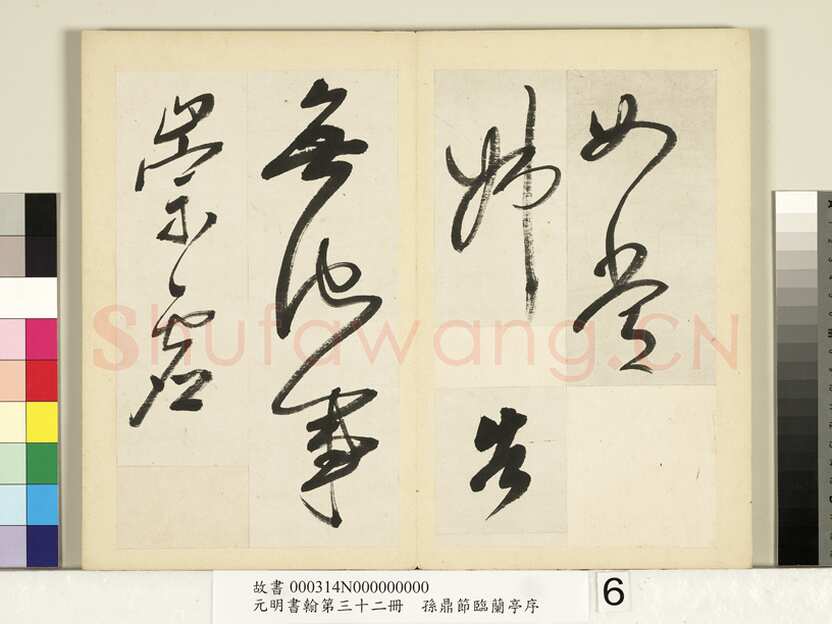 姊
告
無他事
崇虛
Shufawang.CN
故書 000314N000000000
元明書翰第三十二冊　孫鼎節臨蘭亭序
6